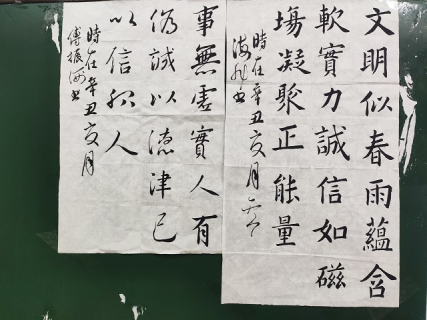 文明似春雨蘊含
軟實力誠信如磁
場凝聚正能量
時在辛丑亥月
海
書
事無虛實人有
偽誠以德律己
以信
人
時在辛丑亥月
傅振
書